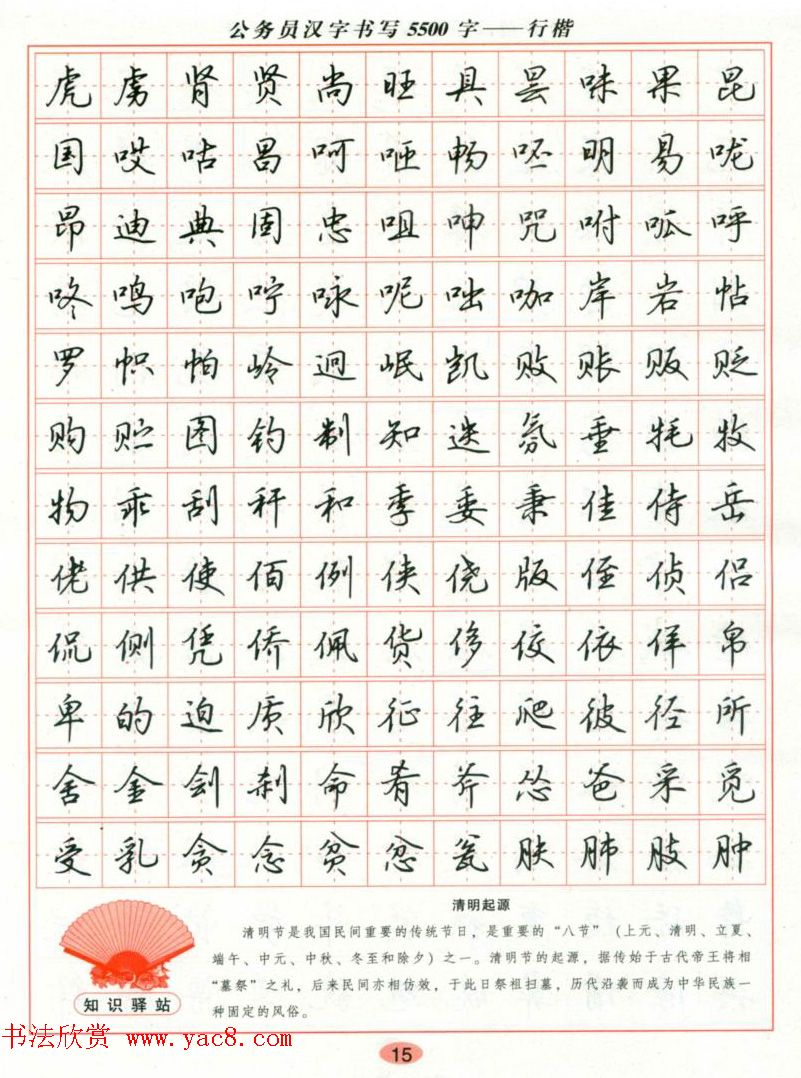 公务员汉字书写5500字——行楷
虎虏肾贤尚旺具昙味果昆
国哎咕昌呵咂畅呸明易咙
昂迪典固忠咀呻咒咐呱呼
咚鸣咆咛咏呢咄咖岸岩帖
罗帜帕岭迥岷凯败账贩贬
购贮图钓制知迭氛垂牦牧
物乖刮秆和季委秉佳侍岳
佬供使佰例侠侥版侄侦侣
侃侧凭侨佩货侈佼依佯帛
卑的迫质欣征往爬彼径所
舍金刽刹命肴斧怂爸采觅
受乳贪念贫忿瓮肤肺肢肿
清明起源
清明节是我国民间重要的传统节日，是重要的“八节”（上元、清明、立夏、
端午、中元、中秋、冬至和除夕）之一。清明节的起源，据传始于古代帝王将相
“墓祭”之礼，后来民间亦相仿效，于此日祭祖扫墓，历代沿袭而成为中华民族一
种固定的风俗。
知识驿站
书法欣赏 www.yac8.com
15